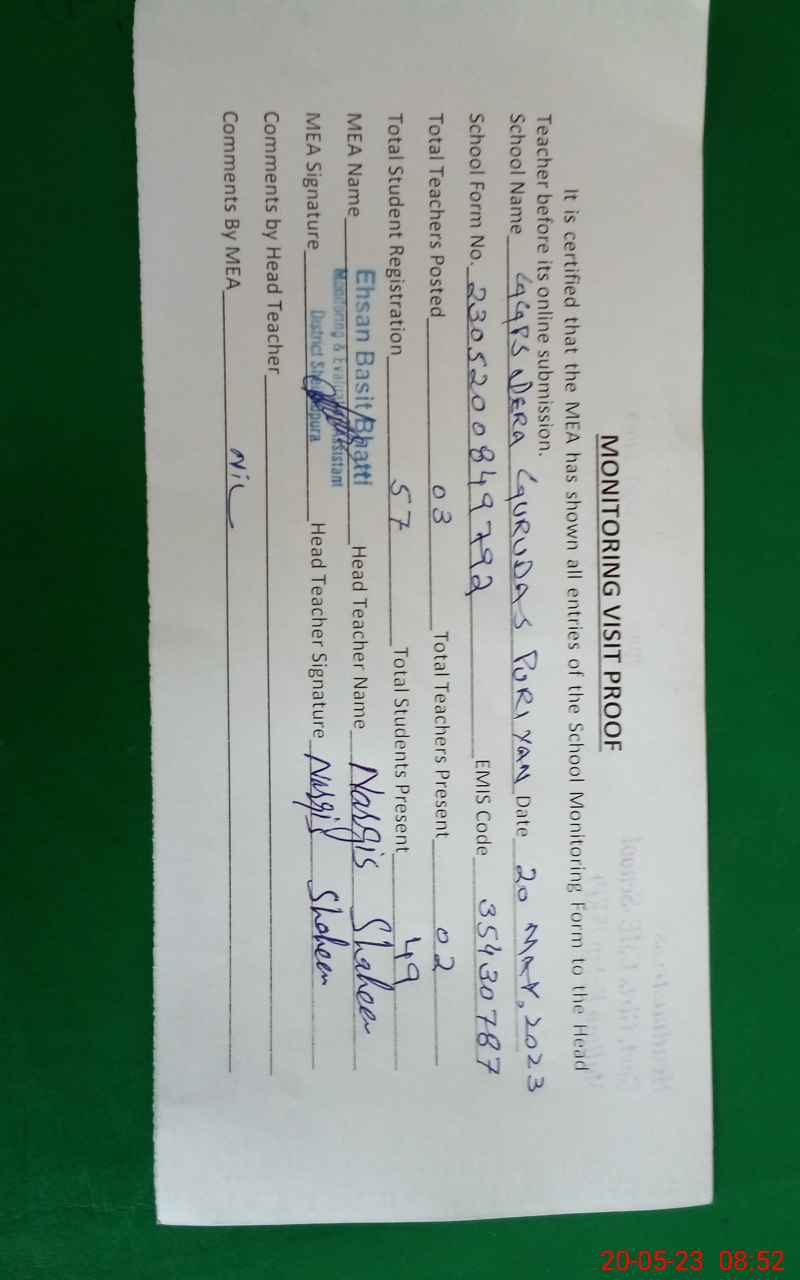 MONITORING VISIT PROOF
It is certified that the MEA has shown all entries of the School Monitoring Form to the Head
Teacher before its online submission.
School Name GGPS DERA GURUDAS PURIYAN Date 20 MAY, 2023
School Form No. 2305200849792 EMIS Code 35430787
Total Teachers Posted 03 Total Teachers Present 02
Total Student Registration 57 Total Students Present 49
MEA Name Ehsan Basit Bhatti Head Teacher Name Nargis Shaheen
Monitoring & Evaluation Assistant
MEA Signature District Sheikhupura Head Teacher Signature Nargis Shaheen
Comments by Head Teacher
Comments By MEA Nil
20-05-23 08:52